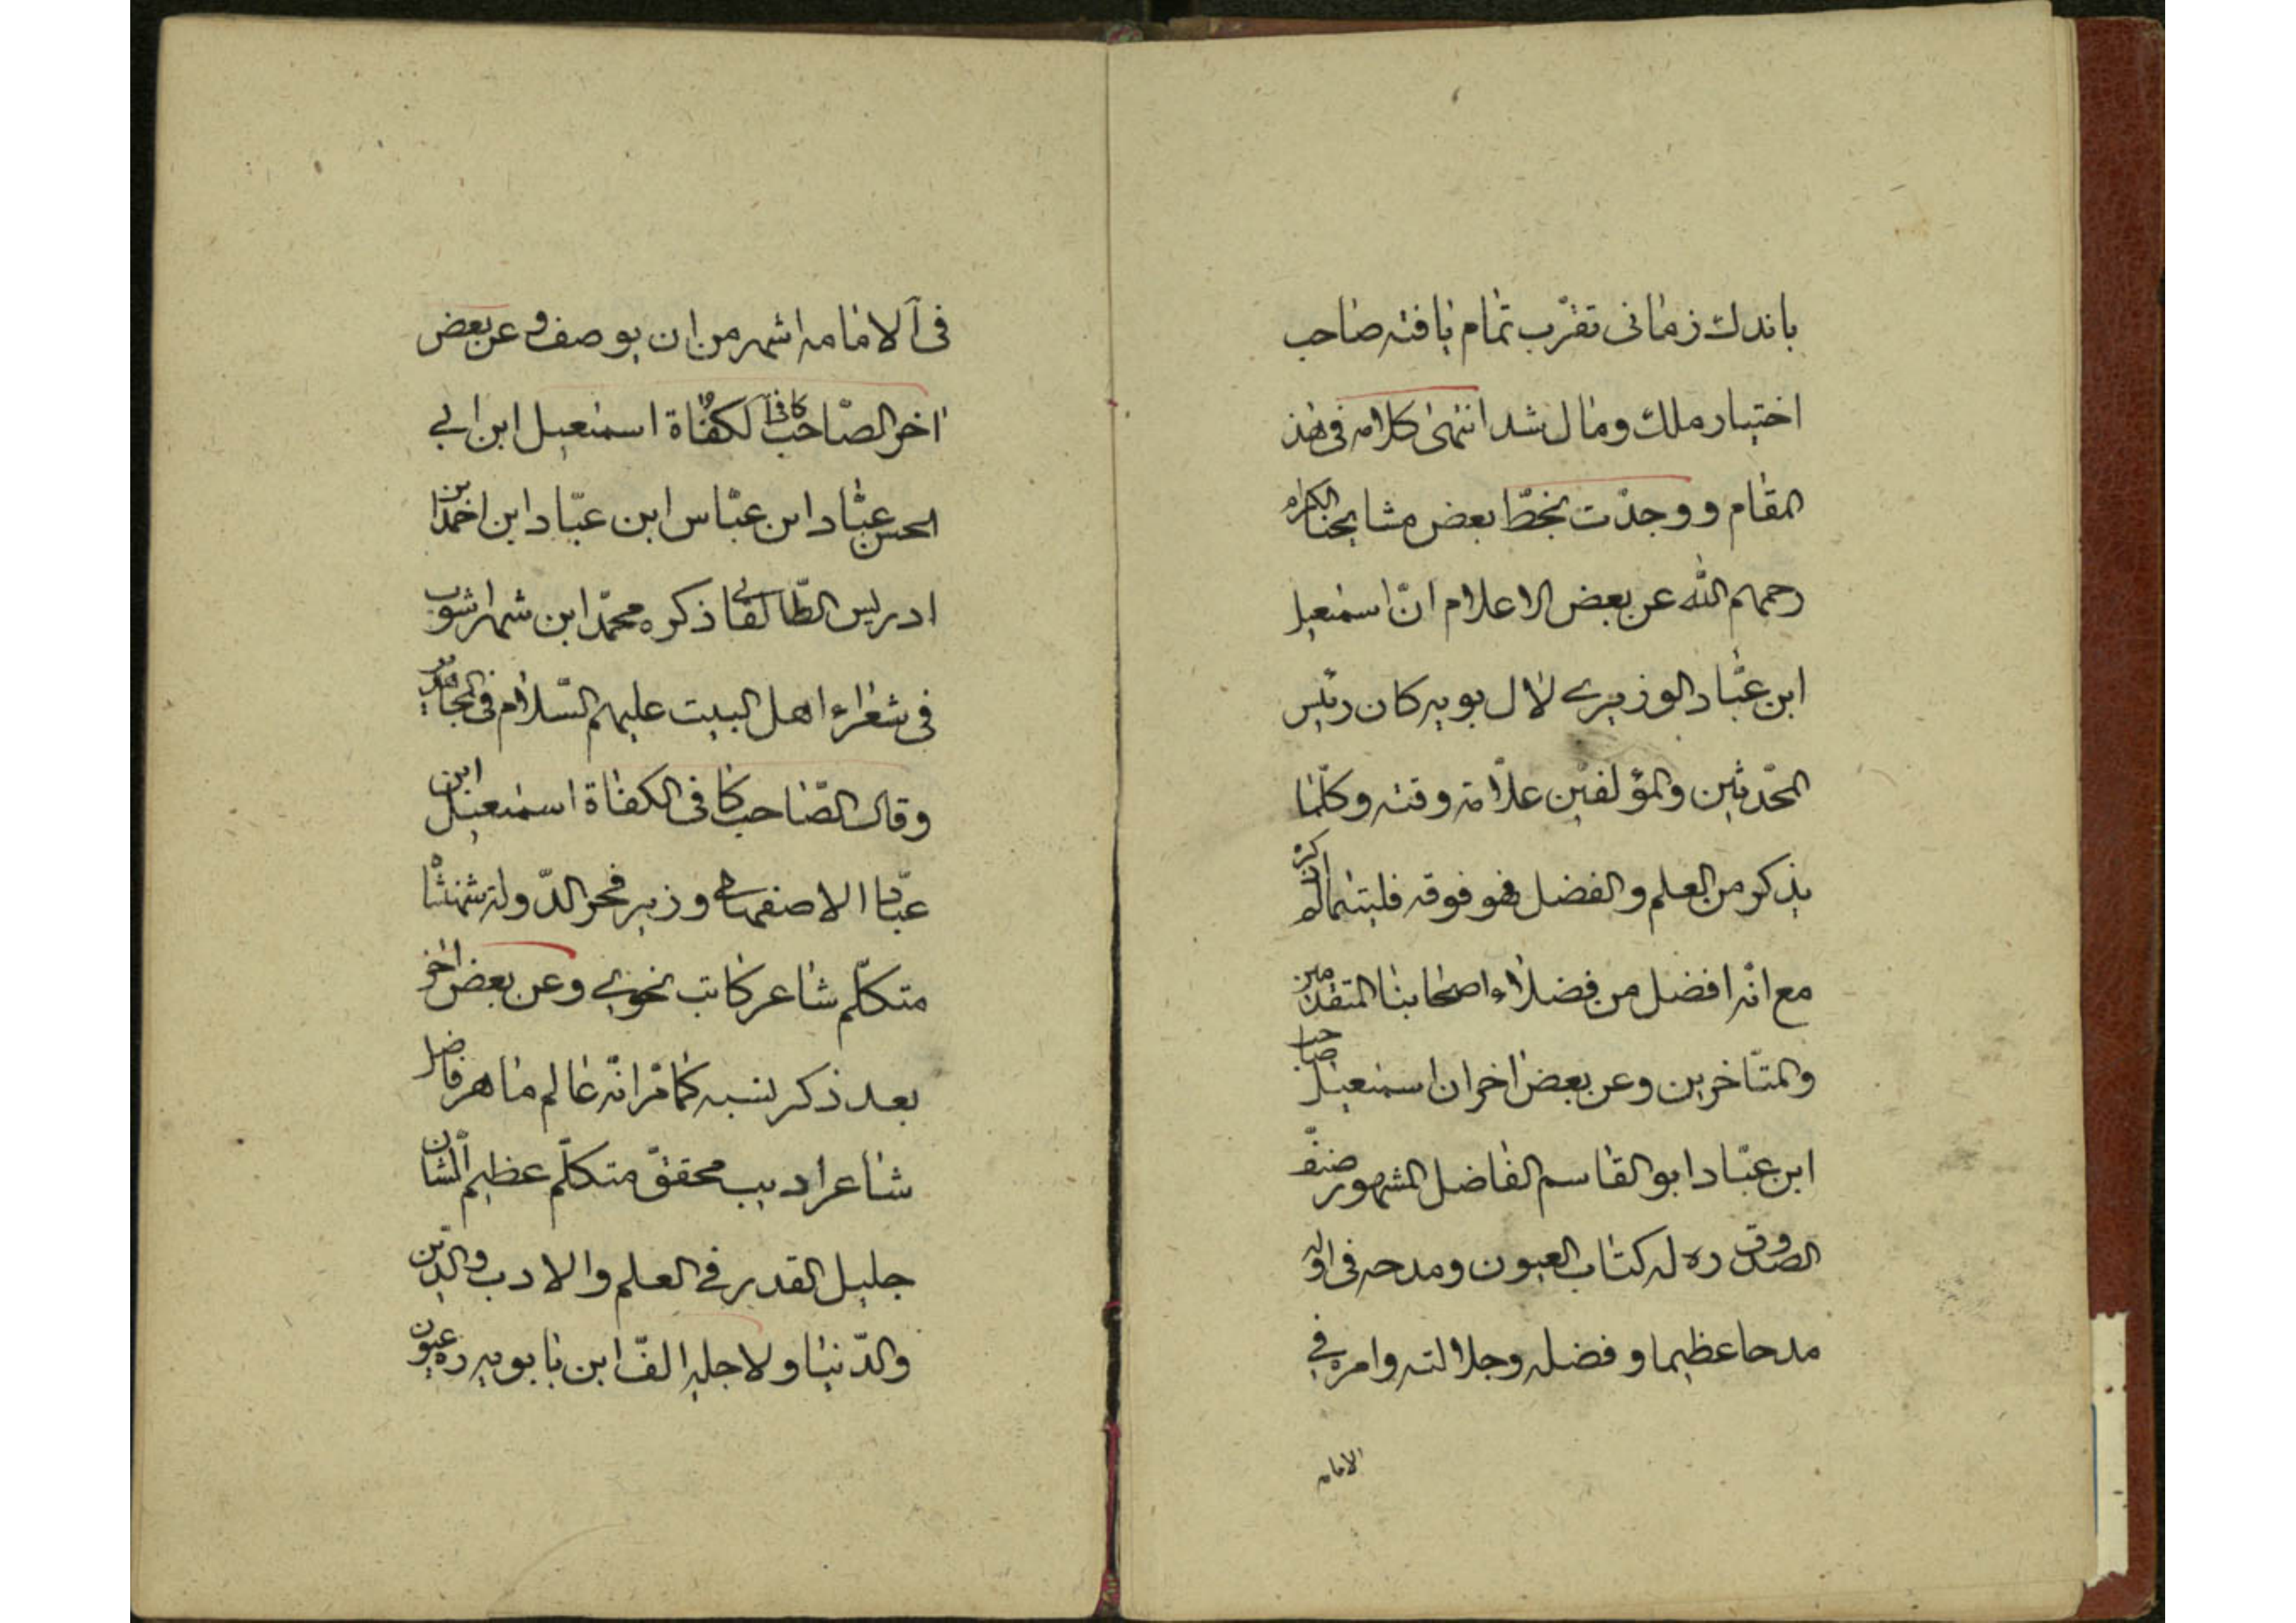 باندك زمانی تقرب تمام یافته صاحب
اختیار ملك ومال شد انتهی کلامه فی هذ
المقام ووجدت بخط بعض مشایخنا الکرام
رحمهم الله عن بعض الاعلام ان اسمعیل
ابن عباد الوزیری لال بویه کان رئیس
المحدثین والمؤلفین علامة وقته وکلما
یذکر من العلم والفضل فهو فوقه
مع انه افضل من فضلاء اصحابنا المتقدمین
والمتاخرین وعن بعض اخر ان اسمعیل صاحب
ابن عباد ابو القاسم الفاضل المشهور صنف
الصدوق ره له کتاب العیون ومدحه فی اوله
مدحا عظیما و فضله وجلالته وامره فی
الامامه
فی الامامه اشهر من ان یوصف وعن بعض
اخر الصاحب کافی الکفاة اسمعیل ابن ابی
الحسن عباد ابن عباس ابن عباد ابن احمد بن
ادریس الطالقانی ذکره محمد ابن شهراشوب
فی شعراء اهل البیت علیهم السلام فی المجاهدین
وقال الصاحب کافی الکفاة اسمعیل ابن
عباد الاصفهانی وزیر فخر الدولة شهنشاه
متکلم شاعر کاتب نحوی وعن بعض اخر
بعد ذکر نسبه کما مر انه عالم ماهر فاضل
شاعر ادیب محقق متکلم عظیم الشان
جلیل القدر فی العلم والادب والدین
والدنیا ولاجله الف ابن بابویه ره عیون